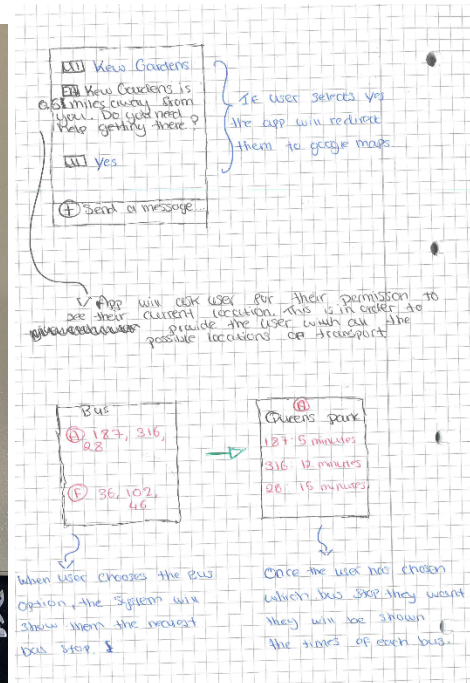 U1 Kew Gardens
Kew Gardens is
miles away from
you. Do you need
help getting there?
U1 yes
+ Send a message...
If user selects yes
the app will redirect
them to google maps
App will ask user for their permisson to
see their current location. This is in order to
provide the user with all the
possible locations of transport
Bus
A 187, 316,
28
F 36, 102,
46
A
Queens park
187: 5 minutes
316: 12 minutes
28: 15 minutes
When user chooses the Bus
option, the system will
show them the nearest
bus stop.
Once the user has chosen
which bus stop they want
they will be shown
the times of each bus.